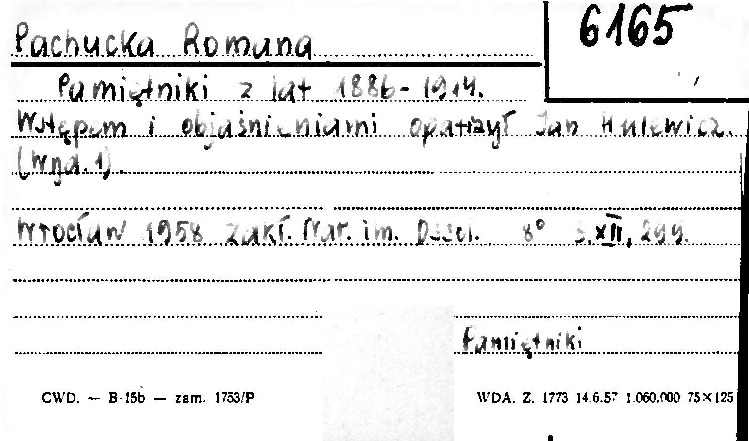 6165
Pachucka Romana
Pamiętniki z lat 1886-1914.
Wstępem i objaśnieniami opatrzył Jan Hulewicz.
(Wyd. 1).
Wrocław 1958 Zakł. Nar. im. Ossol. 8° s. XII, 299.
Pamiętniki
CWD. — B-15b — zam. 1753/P
WDA. Z. 1773 14.6.57 1.060.000 75×125